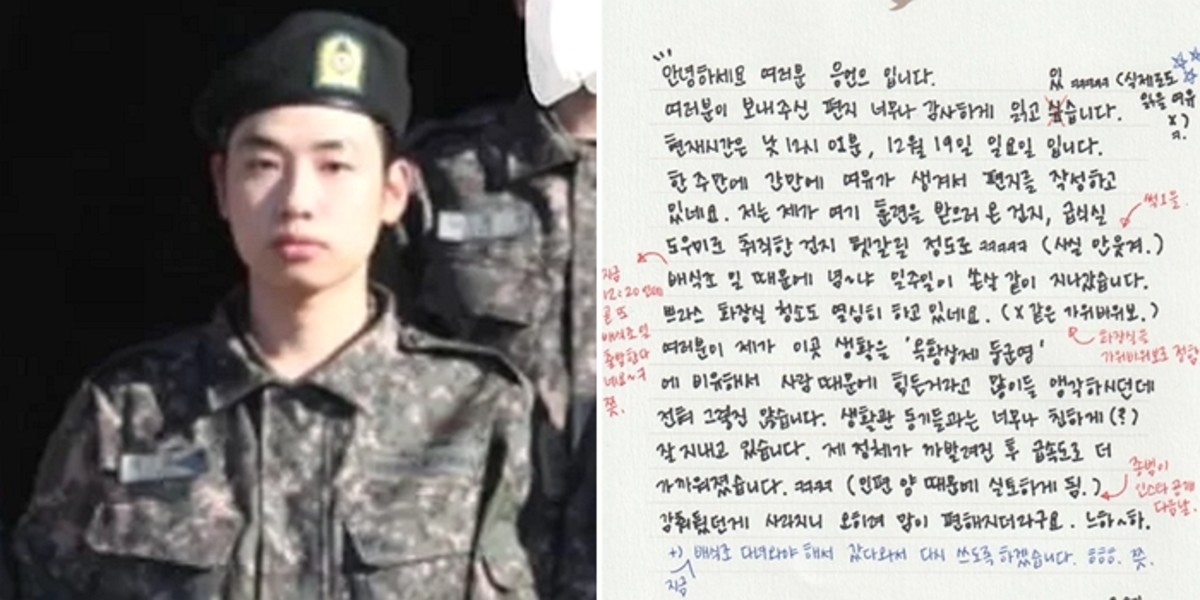 안녕하세요 여러분 응언으 입니다.
여러분이 보내주신 편지 너무나 감사하게 읽고 있습니다.
ㅋㅋㅋㅋㅋ (실제로도
읽을 여유
X)
ㅋ.
현재시간은 낮 12시 02분, 12월 19일 일요일 입니다.
한 주만에 간만에 여유가 생겨서 편지를 작성하고
있네요. 저는 제가 여기 훈련을 받으러 온 건지, 급식실
썩으믈.
도우미로 취직한 건지 헷갈릴 정도로 ㅋㅋㅋㅋㅋ (사실 안웃겨.)
배식조 일 때문에 념~냐 일주일이 쏜살 같이 지나갔습니다.
지금
12:20 인데
곧 또
배식조 일
출발한다
네요~ㅋ
쯧.
쁘라스 화장실 청소도 열심히 하고 있네요. (X같은 가위바위보.)
화장실을
가위바위보로 정함
여러분이 제가 이곳 생활을 '옥황상제 둥군영'
에 비유해서 사람 때문에 힘든거라고 많이들 생각하시던데
전혀 그렇진 않습니다. 생활관 동기들과는 너무나 친하게 (?)
잘 지내고 있습니다. 제 정체가 까발려진 후 급속도로 더
가까워졌습니다. ㅋㅋㅋㅋ (인편 양 때문에 실토하게 됨.)
종범이
인스타 공개
다음날.
감춰뒀던게 사라지니 오히려 맘이 편해지더라구요. 느하~하.
+) 배식조 다녀와야 해서 갔다와서 다시 쓰도록 하겠습니다. ㅎㅎㅎ. 쯧.
지금